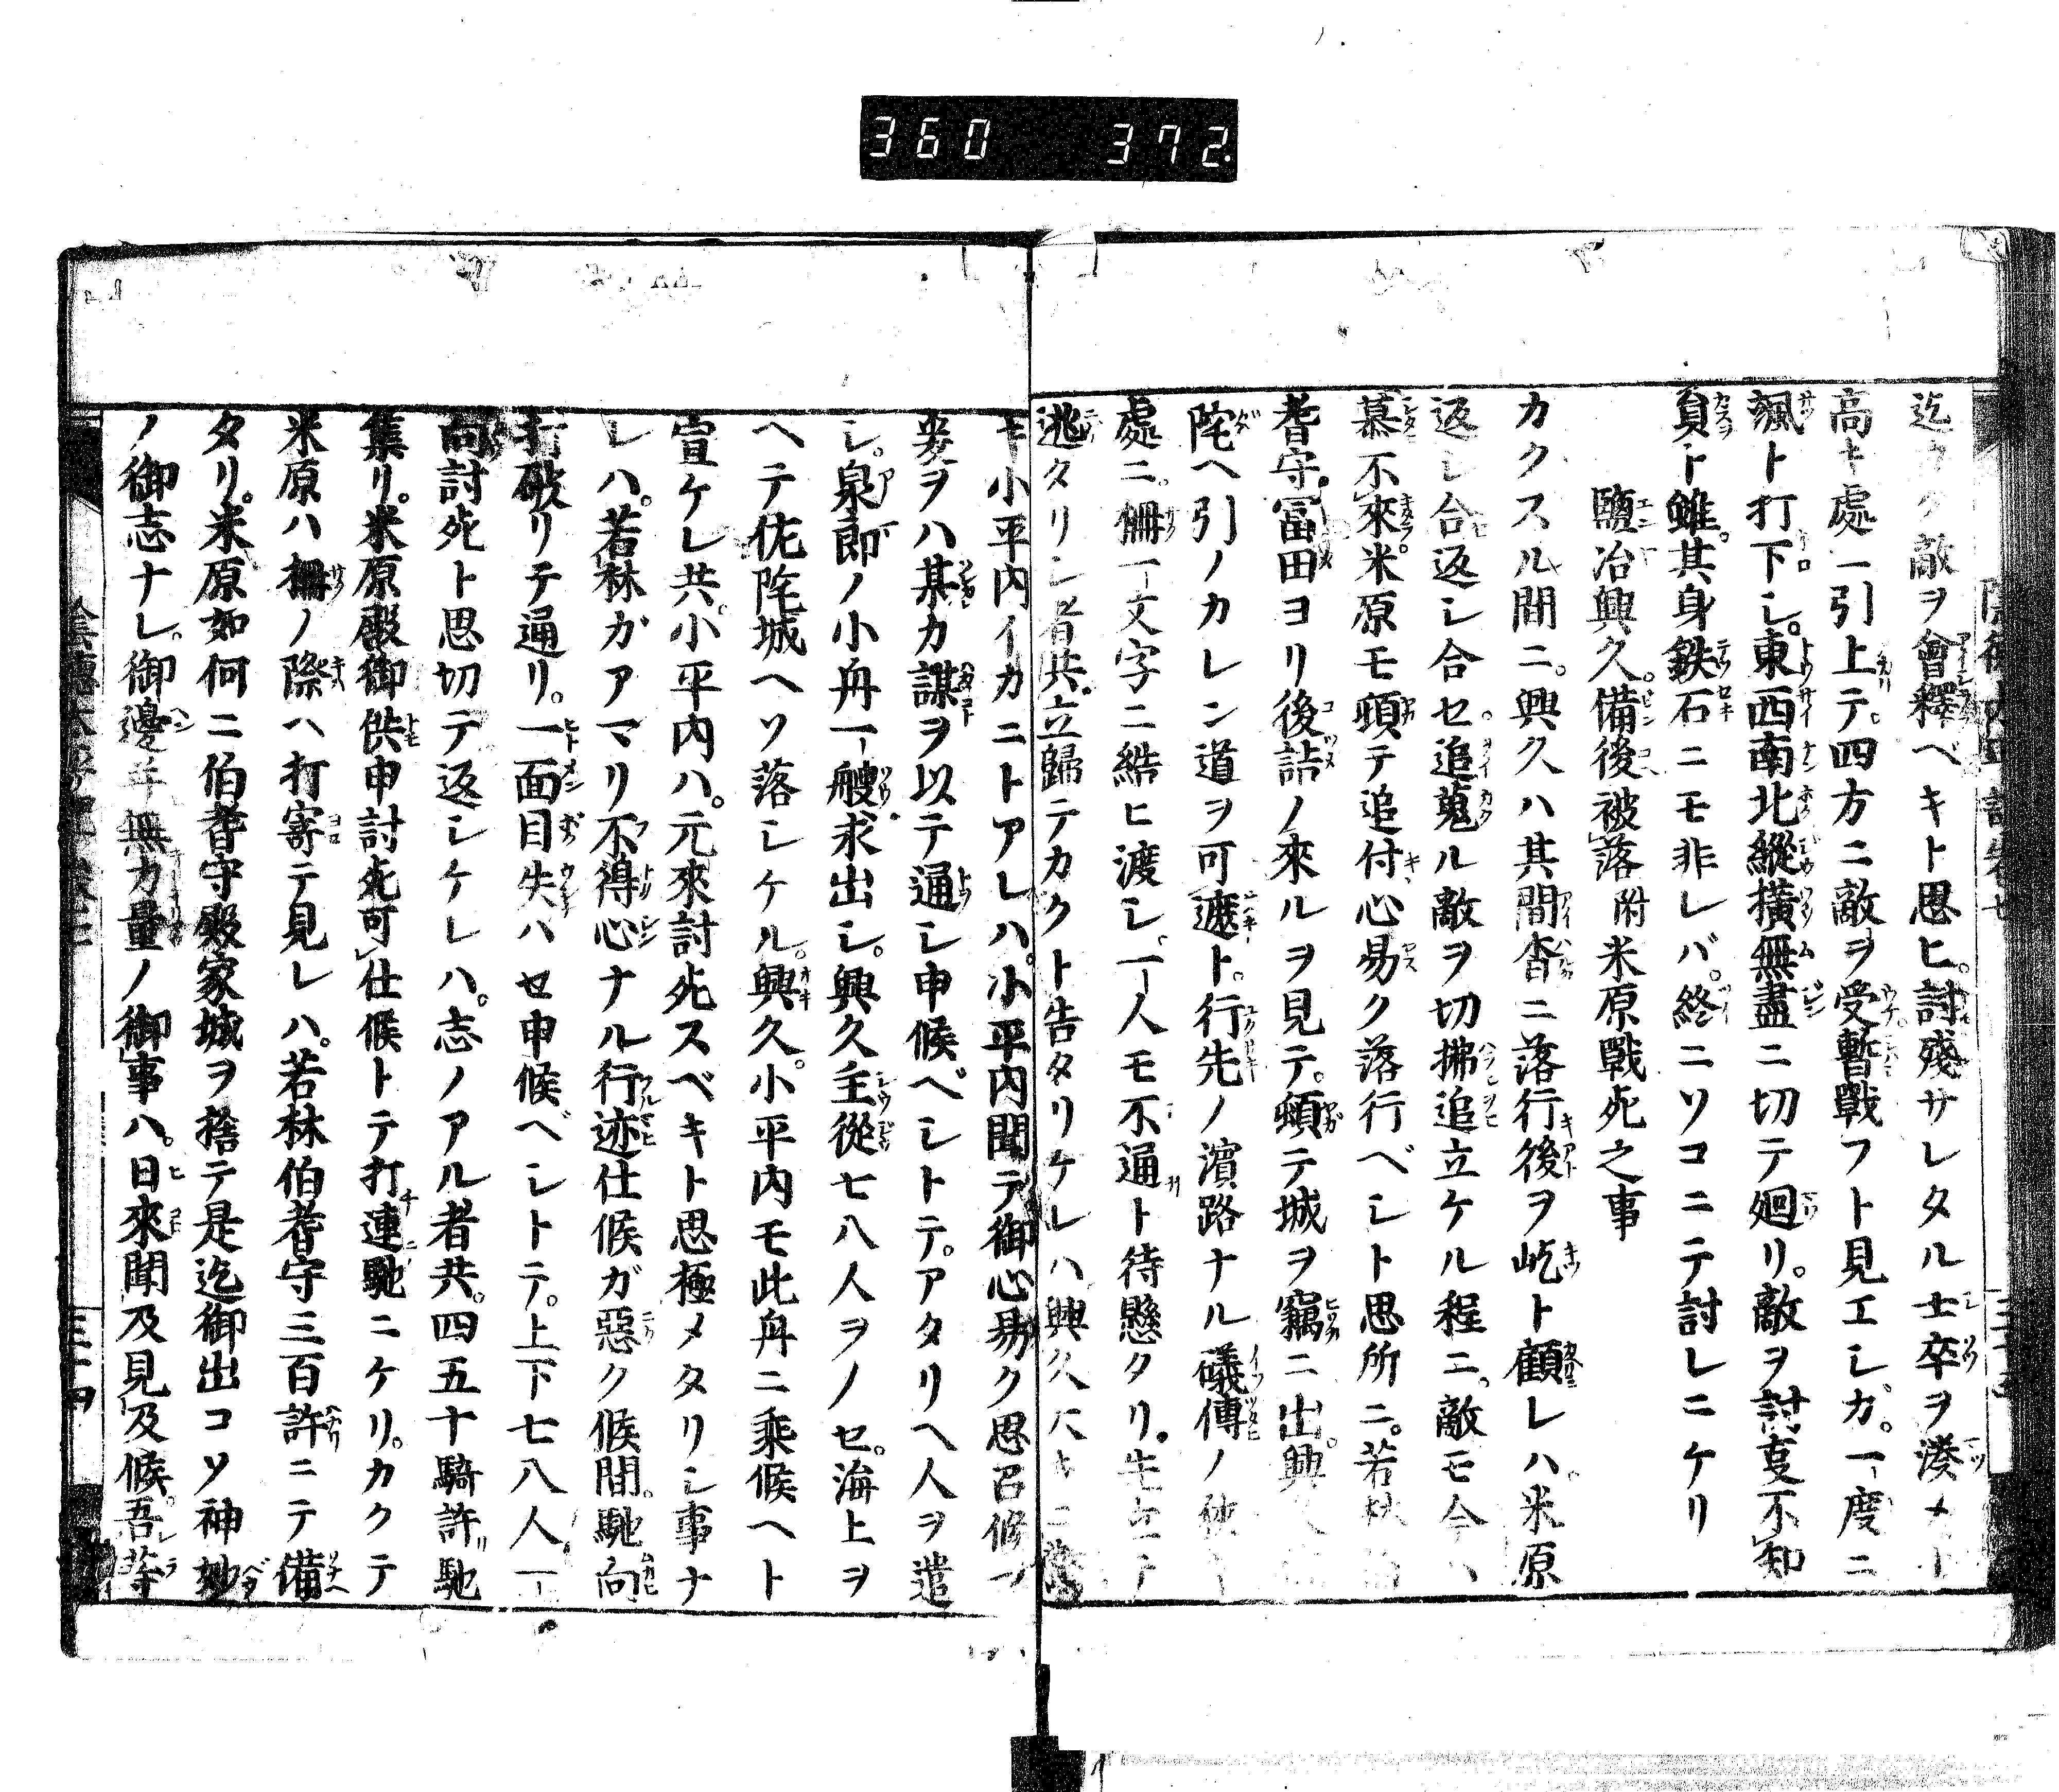 360 372
迄カク敵ヲ會釋ベキト思ヒ。討殘サレタル士卒ヲ湊メ
高キ處ニ引上テ。四方ニ敵ヲ受暫戰フト見エシガ。一度ニ
颯ト打下シ。東西南北縱橫無盡ニ切テ廻リ。敵ヲ討不知
員ト雖。其身鉄石ニモ非レバ。終ニソコニテ討レニケリ
鹽冶興久。備後被落附米原戰死之事
カクスル間ニ。興久ハ其間沓ニ落行後ヲ屹ト顧レハ。米原
返シ合返シ合セ。追蒐ル敵ヲ切拂追立ケル程ニ。敵モ今ハ
慕不來。米原モ頓テ追付心易ク落行ベシト思所ニ。若林伯
耆守。冨田ヨリ後詰ノ來ルヲ見テ。頓テ城ヲ竊ニ出。興久
陀ヘ引ノカレン道ヲ可遮ト。行先ノ濵路ナル礒傳ノ
處ニ。柵一文字ニ結ヒ渡シ。一人モ不通ト待懸タリ。先立テ
逃タリシ者共。立歸テカクト告タリケレハ。興久大キニ
キ小平内イカニトアレハ。小平内聞テ御心易ク思召候ヘ
爰ヲハ某カ謀ヲ以テ通シ申候ベシトテ。アタリヘ人ヲ遣
シ。泉郎ノ小舟一艘求出シ。興久主從七八人ヲノセ。海上ヲ
ヘテ佗陀城ヘソ落シケル。興久。小平内モ此舟ニ乘候ヘト
宣ケレ共。小平内ハ。元來討死スベキト思極メタリシ事ナ
レハ。若林ガアマリ不得心ナル行迹仕候ガ惡ク候間。馳向
打破リテ通リ。一面目失ハセ申候ベシトテ。上下七八人一
向討死ト思切テ返シケレハ。志ノアル者共。四五十騎許馳
集リ。米原殿御供申討死可仕候トテ打連馳ニケリ。カクテ
米原ハ柵ノ際ヘ打寄テ見レハ。若林伯耆守三百許ニテ備
タリ。米原如何ニ伯耆守殿家城ヲ捨テ是迄御出コソ神妙
ノ御志ナレ。御邊年無力量ノ御事ハ。日來聞及見及候。吾等
三十四